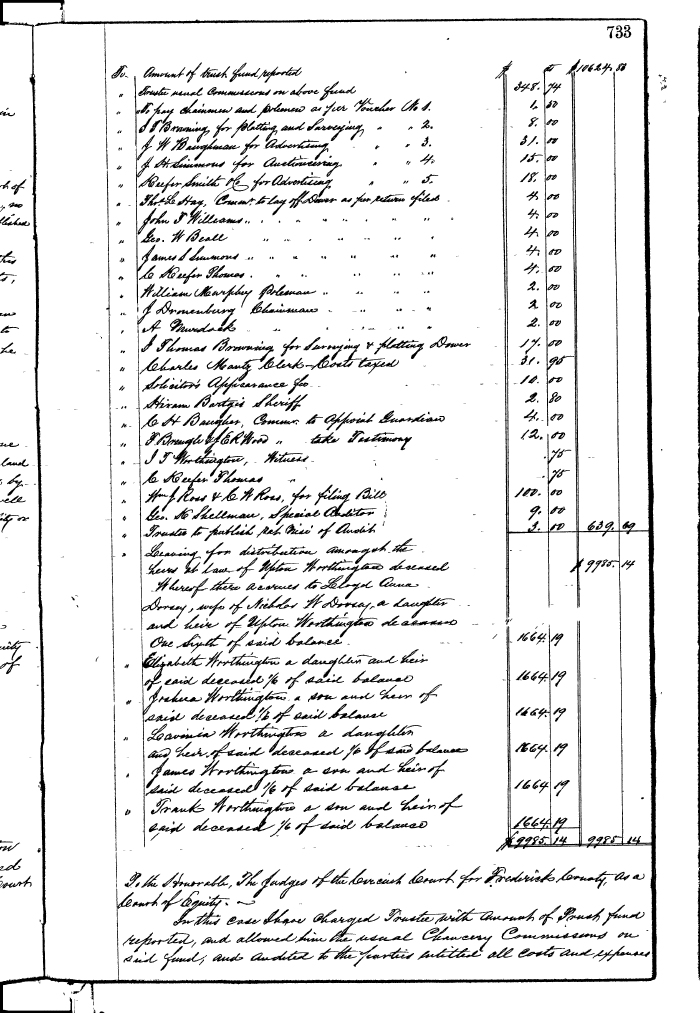 733
To Amount of trust fund reported $10624. 83
" Trustee usual Commissions on above fund 348. 74
" To pay chainmen and polemen as per Voucher No 1. 1. 50
" S T Browning for platting and Surveying " " 2. 8. 00
" J W Baughman for Advertising " " 3. 31. 00
" J. H. Simmons for Auctioneering " " 4. 15. 00
" Keefer Smith & Co for Advertising " " 5. 18. 00
" Thos. C Hay, Commr. to lay off Dower as per return filed 4. 00
" John T Williams " " " " " " " 4. 00
" Geo. W Beall " " " " " " " 4. 00
" James S Simmons " " " " " " " 4. 00
" C Keefer Thomas " " " " " " 4. 00
" William Murphy Poleman " " " " 2. 00
" J Dronenburg Chainman " " " " 2 00
" A Murdock " " " " " 2. 00
" S Thomas Browning for Surveying & platting Dower 17. 00
" Charles Mantz Clerk - Costs taxed 31. 95
" Solicitors Appearance fee 10. 00
" Hiram Bartgis Sheriff 2. 80
" C H Baugher, Commr. to Appoint Guardian 4. 00
" of E R Wood " take Testimony 12. 00
" J T Worthington, Witness . 75
" C Keefer Thomas " . 75
" Wm J Ross & C W Ross, for filing Bill 100. 00
" Geo. K Shellman, Special Auditor 9. 00
" Trustee to publish Nisi of Audit 3. 00 639. 69
" Leaving for distribution amongst the
heirs at law of Upton Worthington deceased $ 9985. 14
Whereof there accrues to Lloyd Anna
Dorsey, wife of Nicholas W Dorsey, a daughter
and heir of Upton Worthington deceased
One Sixth of said balance 1664. 19
" Elizabeth Worthington a daughter and heir
of said deceased 1/6 of said balance 1664. 19
" Joshua Worthington a son and heir of
said deceased 1/6 of said balance 1664. 19
" Lavinia Worthington a daughter
and heir of said deceased 1/6 of said balance 1664. 19
" James Worthington a son and heir of
said deceased 1/6 of said balance 1664 19
" Frank Worthington a son and heir of
said deceased 1/6 of said balance 1664. 19
$ 9985. 14 9985 14
To the Honorable, The Judges of the Circuit Court for Frederick County, as a
Court of Equity. —
In this case I have charged Trustee with amount of Trust fund
reported, and allowed him the usual Chancery Commissions on
said fund, and audited to the parties entitled all costs and expenses